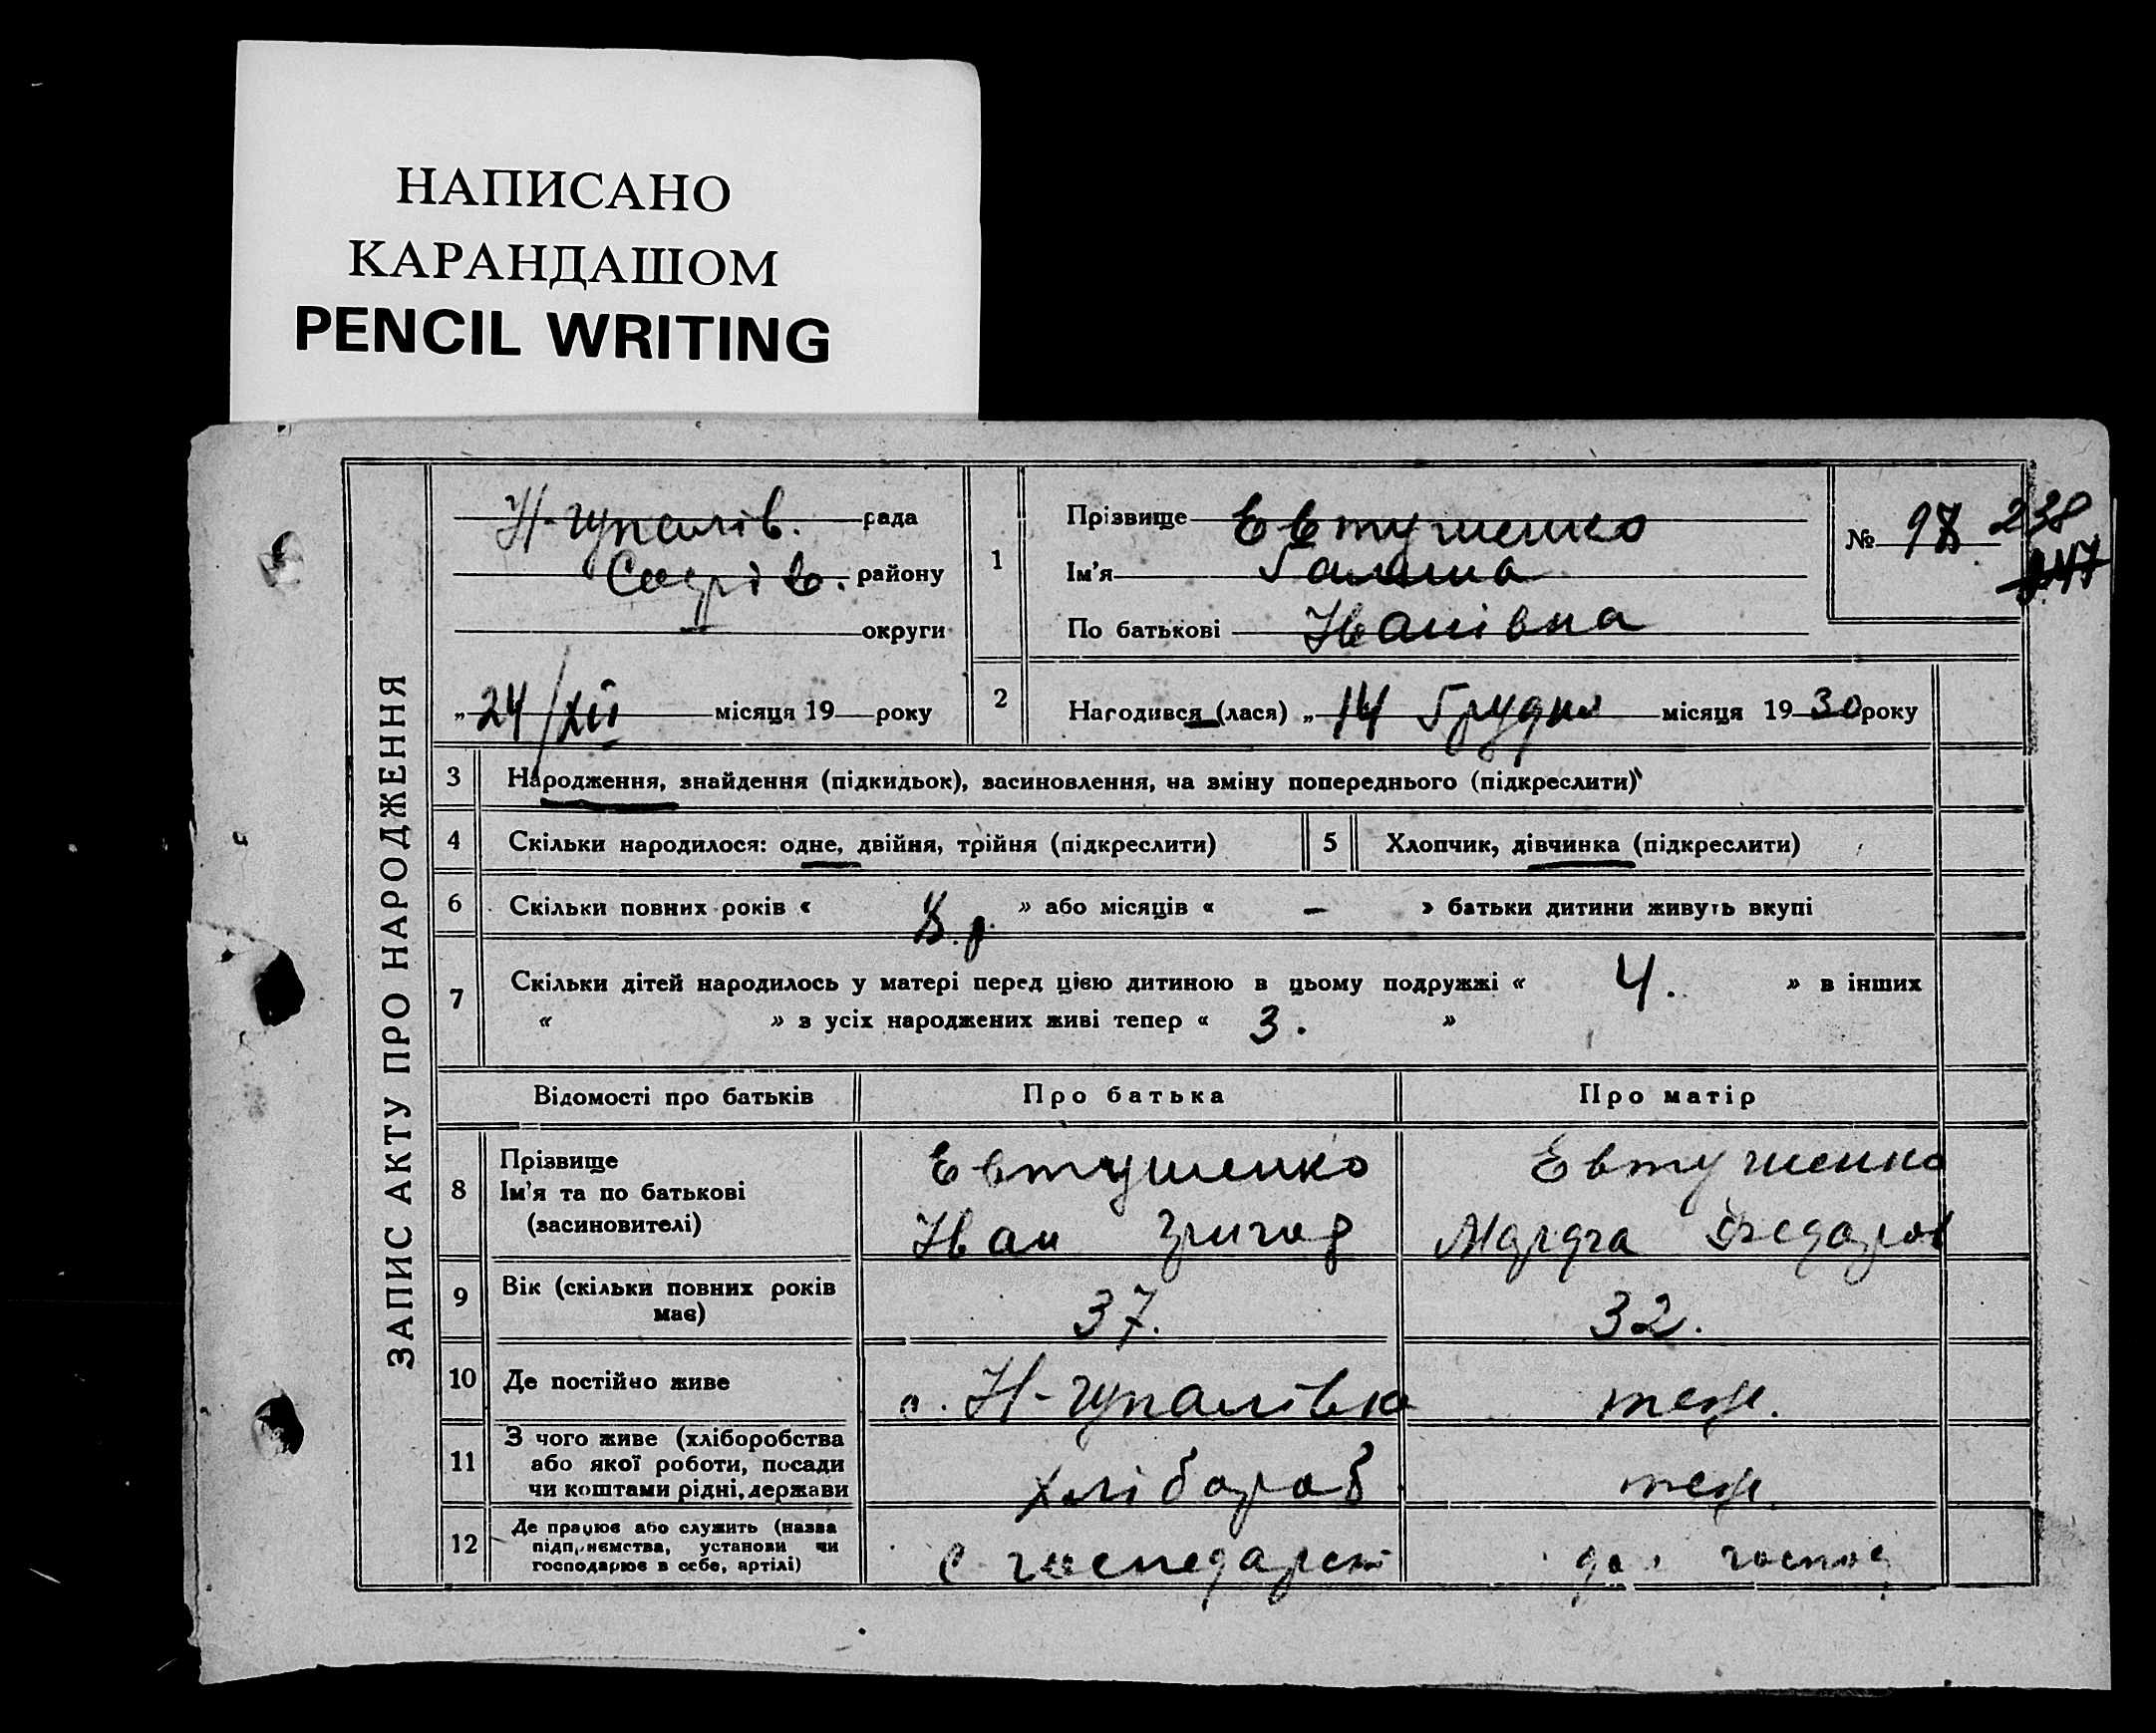 НАПИСАНО
КАРАНДАШОМ
PENCIL WRITING
ЗАПИС АКТУ ПРО НАРОДЖЕННЯ
Н-Чупалів. рада
району
округи
„24/XII місяця 19 року
1
Прізвище Евтушенко
Ім'я Галина
По батькові Іванівна
№ 97 238
247
2
Народився (лася) „ 14 Грудня місяця 19 30 року
3 Народження, знайдення (підкидьок), засиновлення, на зміну попереднього (підкреслити)
4 Скільки народилося: одне, двійня, трійня (підкреслити) 5 Хлопчик, дівчинка (підкреслити)
6 Скільки повних років « р. » або місяців « – » батьки дитини живуть вкупі
7 Скільки дітей народилось у матері перед цією дитиною в цьому подружжі « 4. » в інших
« » з усіх народжених живі тепер « 3. »
Відомості про батьків Про батька Про матір
8 Прізвище Евтушенко Евтушенко
Ім'я та по батькові
(засиновителі) Іван Григор Федоров
9 Вік (скільки повних років
має) 37. 32.
10 Де постійно живе с. Н-Чупалівка теж.
11 З чого живе (хліборобства
або якої роботи, посади
чи коштами рідні, держави хлібороб теж.
12 Де працює або служить (назва
підприємства, установи чи
господарює в себе, артілі) с господарст дом господ